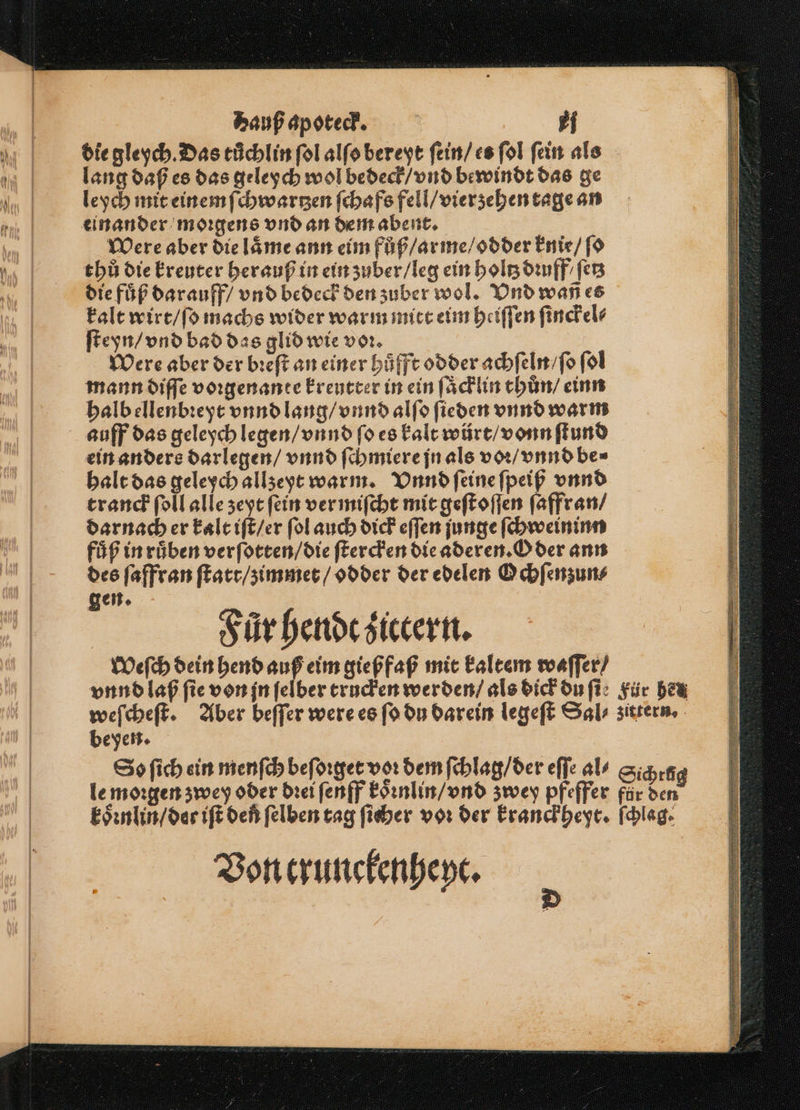 Hauß apoteck.
die gleych. Das tüchlin sol also bereyt sein/ es sol sein als
lang daß es das geleych wol bedeck/ vnd bewindt das ge
leych mit einem schwartzen schafs fell/ vierzehen tage an
einander morgens vnd an dem abent.
Were aber die låme ann eim füß/ arme/ odder knie/ so
thů die kreuter herauß in ein zuber/ leg ein holtz druff/ setz
die füß darauff/ vnd bedeck den zuber wol. Vnd wañ es
kalt wirt/ so machs wider warm mitt eim heissen sinckel⸗
steyn/ vnd bad das glid wie vor.
Were aber der brest an einer hüfft odder achseln/ so sol
mann disse vorgenante kreutter in ein såcklin thůn/ einn
halb ellenbreyt vnnd lang/ vnnd also sieden vnnd warm
auff das geleych legen/ vnnd so es kalt würt/ vonn stund
ein anders darlegen/ vnnd schmiere jn als vor/ vnnd be⸗
halt das geleych allzeyt warm. Vnnd seine speiß vnnd
tranck soll alle zeyt sein vermischt mit gestossen saffran/
darnach er kalt ist/ er sol auch dick essen junge schweininn
füß in rüben versotten/ die stercken die aderen. Oder ann
des saffran statt/ zimmet/ odder der edelen Ochsenzun⸗
gen.
Für hendt zittern.
Wesch dein hend auß eim gießfaß mit kaltem wasser/
vnnd laß sie von jn selber trucken werden/ als dick du sie
weschest. Aber besser were es so du darein legest Sal⸗
beyen.
Für hen
zittern.
So sich ein mensch besorget vor dem schlag/ der esse al⸗
le morgen zwey oder drei senff kőrnlin/ vnd zwey pfeffer
kőrnlin/ der ist deñ selben tag sicher vor der kranckheyt.
Sichrüg
für den
schlag.
Von trunckenheyt.
D